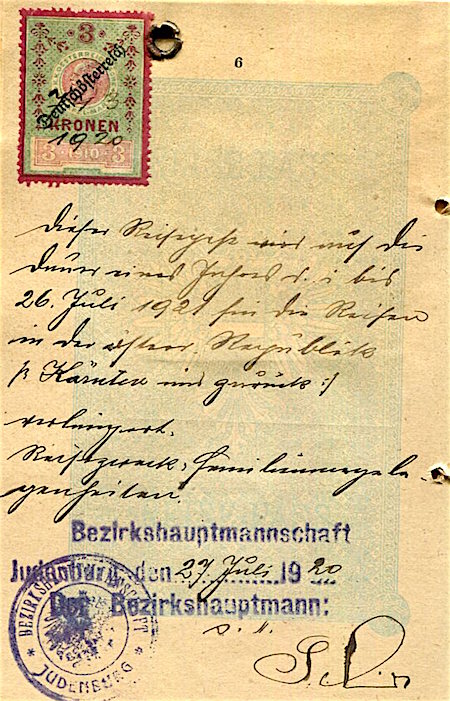 6
3
Deutschösterreich
KRONEN
1920
3 1910 3
Dieser Reisepaß wird auf die
Dauer eines Jahres d. i. bis
26. Juli 1921 für die Reisen
in der österr. Republik
/: Kärnten und zurück :/
verlängert.
Reisezweck: Familienangele-
genheiten.
Bezirkshauptmannschaft
Judenburg den 27 Juli 1920
Der Bezirkshauptmann:
BEZIRKSHAUPTMANNSCHAFT
* JUDENBURG *